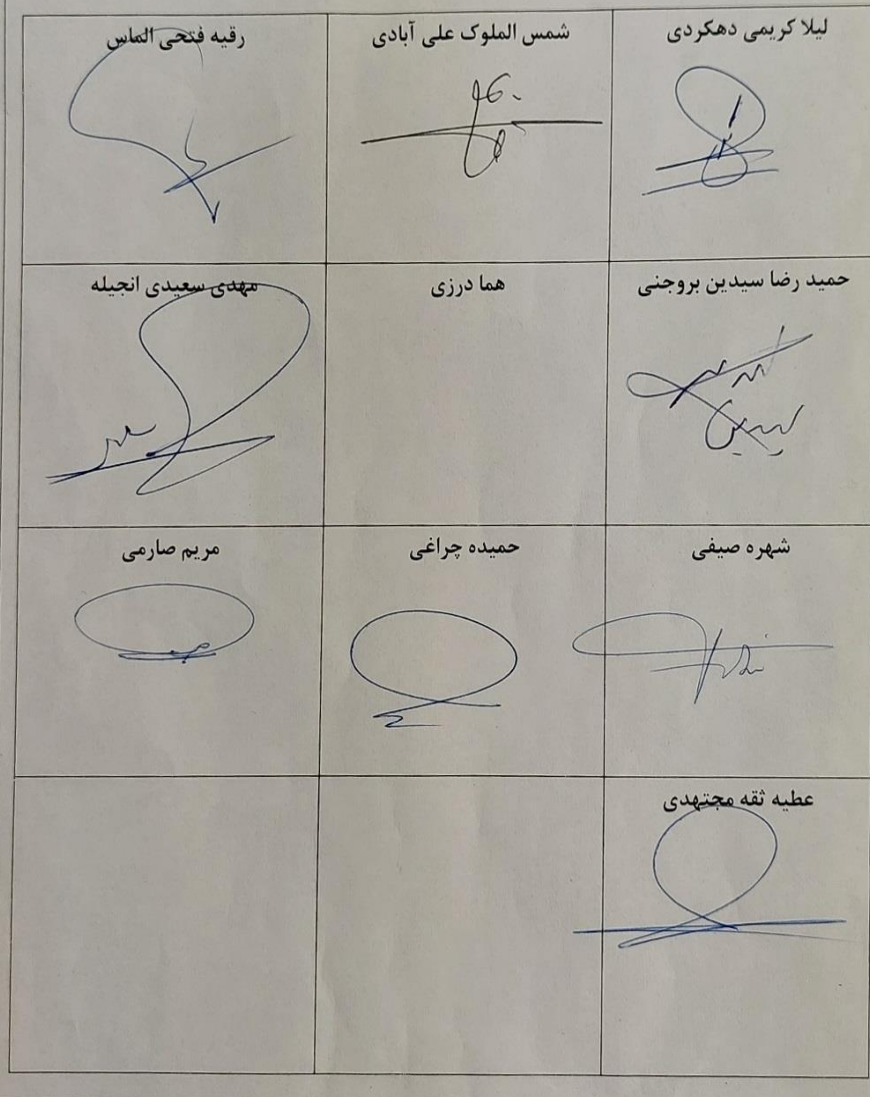 لیلا کریمی دهکردی
شمس الملوک علی آبادی
رقیه فتحی الماس
حمید رضا سیدین بروجنی
هما درزی
مهدی سعیدی انجیله
شهره صیفی
حمیده چراغی
مریم صارمی
عطیه ثقه مجتهدی